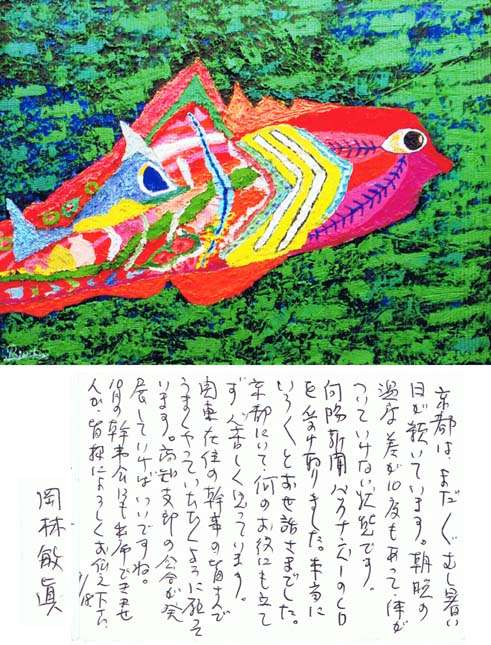 京都は、まだ〲むし暑い
日が続いています。朝晩の
温度差が10度もあって、体が
ついていけない状態です。
向陽新聞バックナンバーのCD
を受けとりました。本当に
いろ〱とお世話さまでした。
京都にいて、何のお役にも立て
ず心苦しく思っています。
関東在住の幹事の皆さんで
うまくやっていただくように祈って
います。高知支部の会合が発
展していけばいいですね。
10月の幹事会にも出席できませ
んが、皆様によろしくお伝え下さい
9/18
岡林敏眞